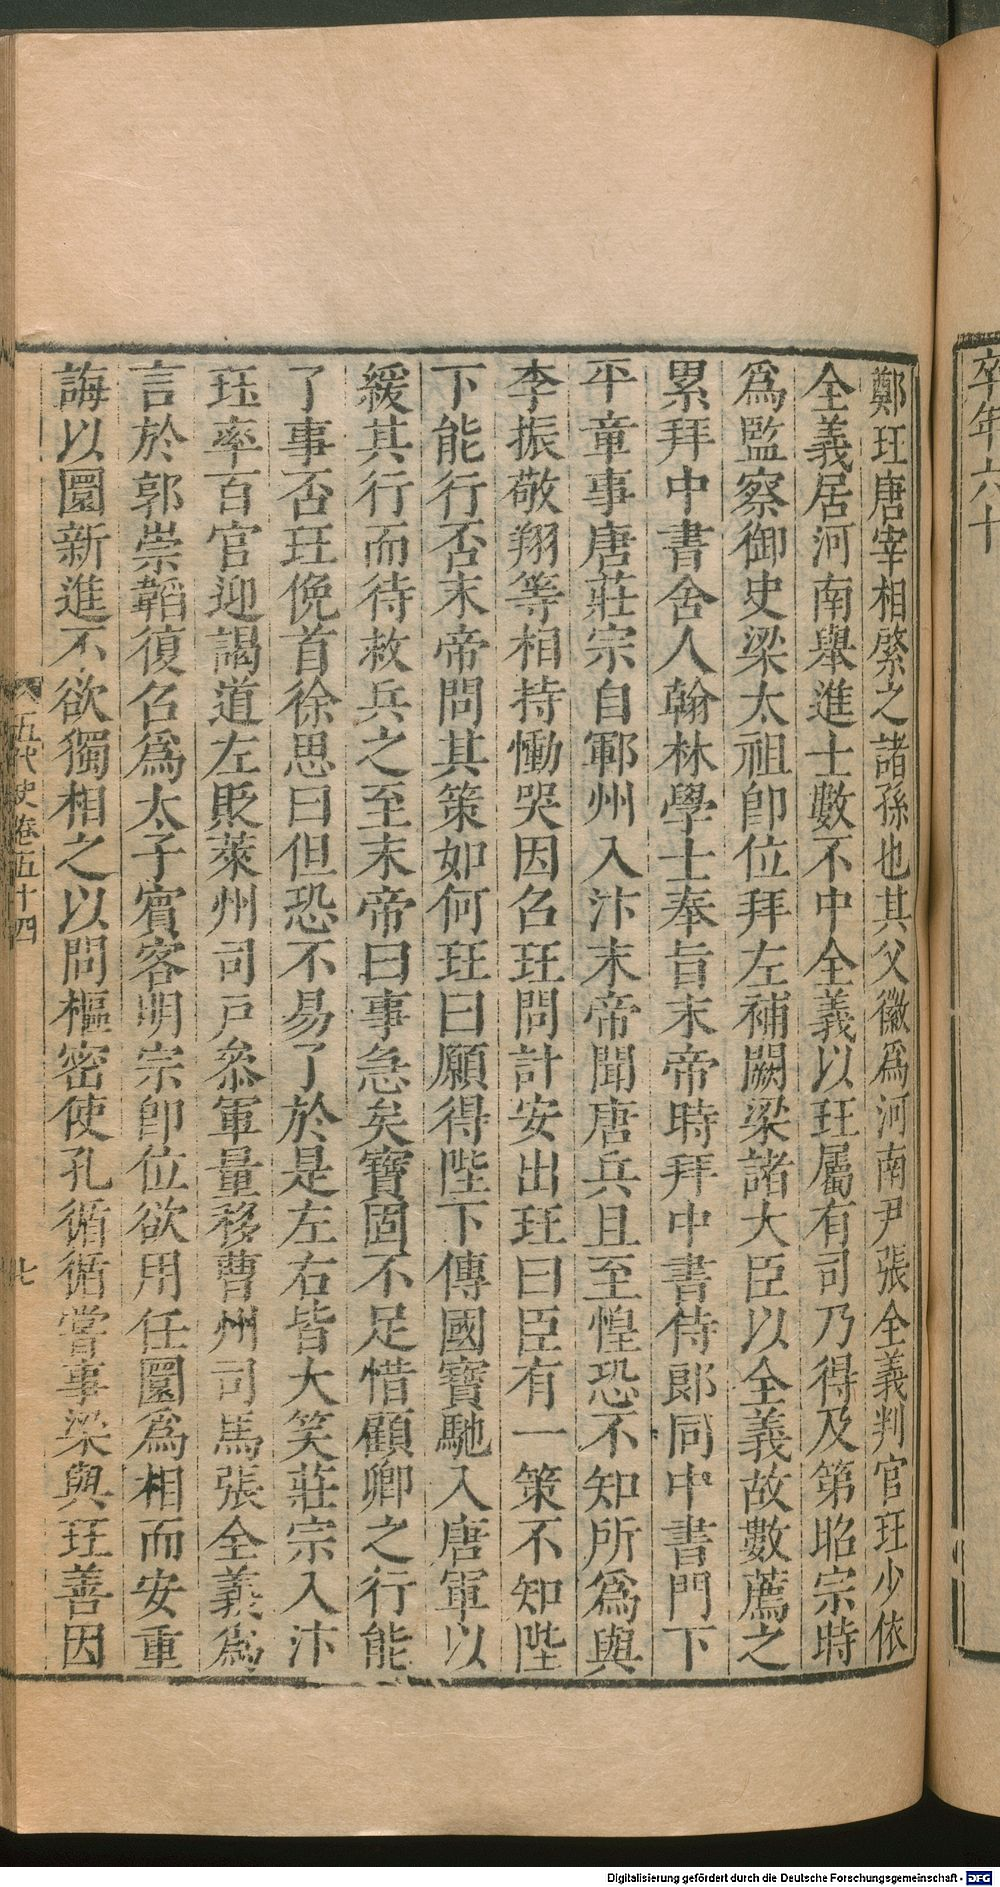 卒年六十
鄭珏唐宰相綮之諸孫也其父徽爲河南尹張全義判官珏少依
全義居河南舉進士數不中全義以珏屬有司乃得及第昭宗時
爲監察御史梁太祖卽位拜左補闕梁諸大臣以全義故數薦之
累拜中書舍人翰林學士奉旨末帝時拜中書侍郎同中書門下
平章事唐莊宗自鄆州入汴末帝聞唐兵且至惶恐不知所爲與
李振敬翔等相持慟哭因召珏問計安出珏曰臣有一策不知陛
下能行否末帝問其策如何珏曰願得陛下傳國寶馳入唐軍以
緩其行而待救兵之至末帝曰事急矣寶固不足惜顧卿之行能
了事否珏俛首徐思曰但恐不易了於是左右皆大笑莊宗入汴
珏率百官迎謁道左貶萊州司戶叅軍量移曹州司馬張全義爲
言於郭崇韜復召爲太子賓客明宗卽位欲用任圜爲相而安重
誨以圜新進不欲獨相之以問樞密使孔循循嘗事梁與珏善因
五代史卷五十四
七
Digitalisierung gefördert durch die Deutsche Forschungsgemeinschaft - DFG